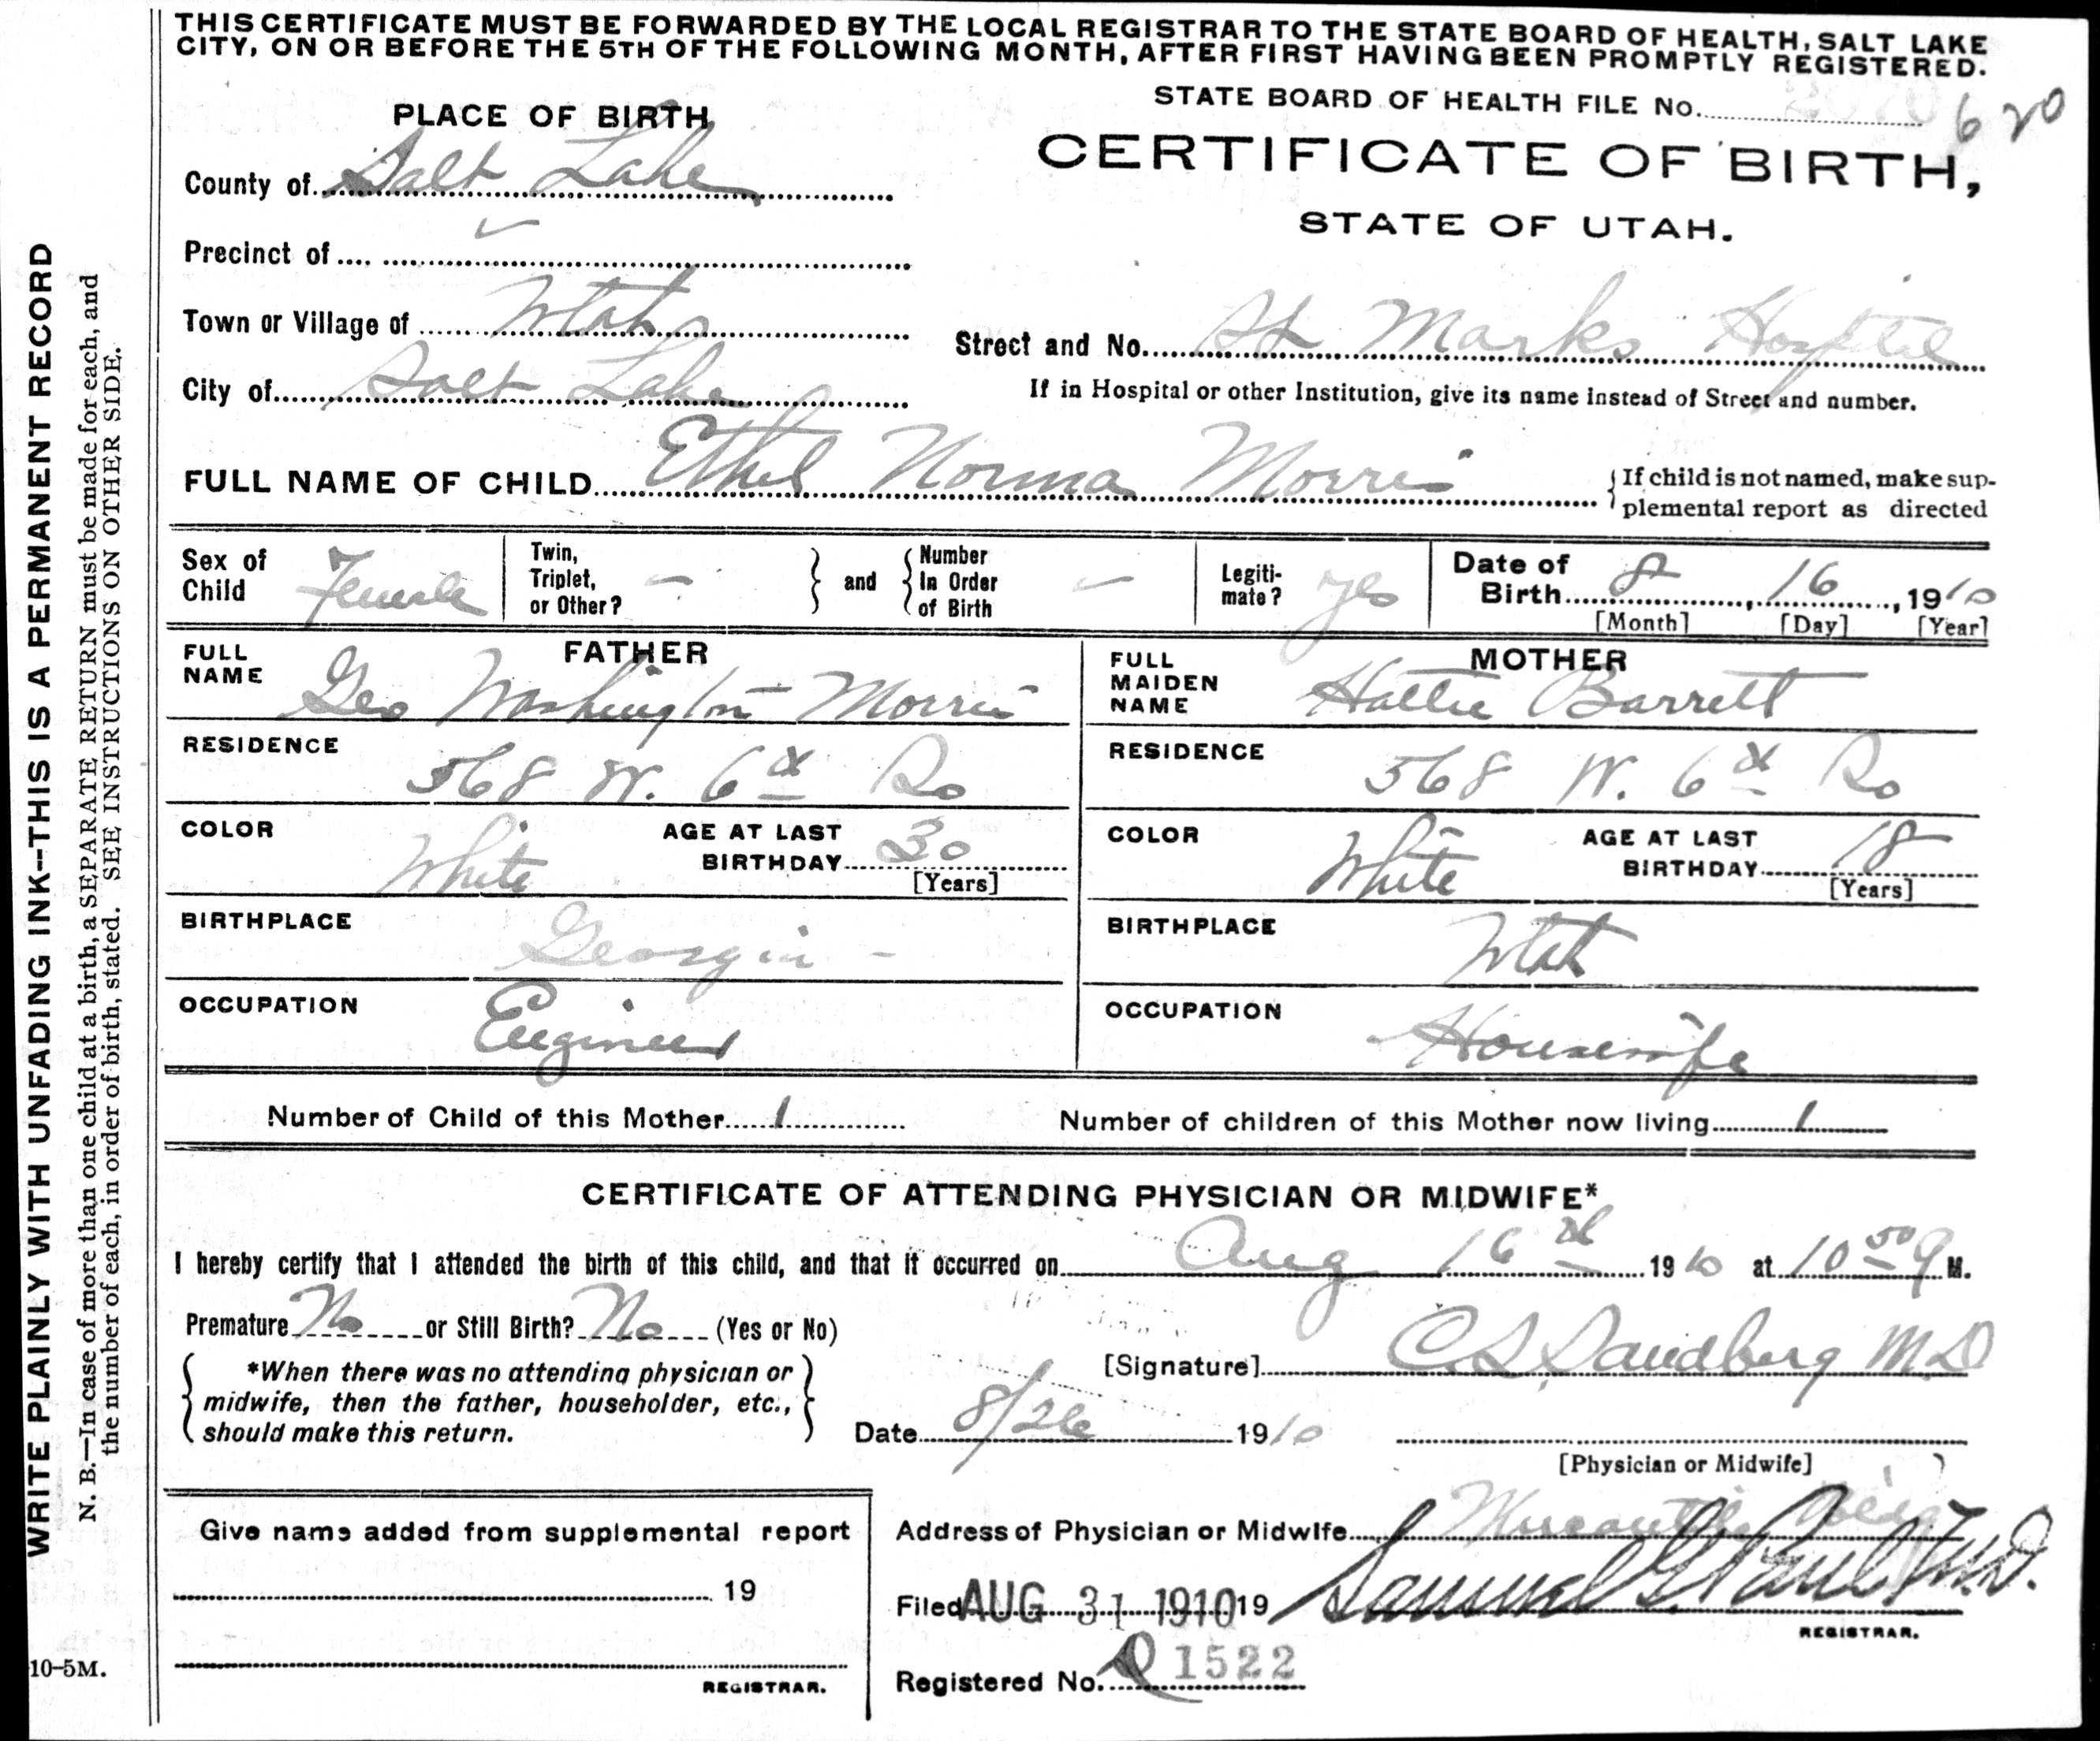 THIS CERTIFICATE MUST BE FORWARDED BY THE LOCAL REGISTRAR TO THE STATE BOARD OF HEALTH, SALT LAKE
CITY, ON OR BEFORE THE 5TH OF THE FOLLOWING MONTH, AFTER FIRST HAVING BEEN PROMPTLY REGISTERED.
WRITE PLAINLY WITH UNFADING INK--THIS IS A PERMANENT RECORD
N. B.—In case of more than one child at a birth, a SEPARATE RETURN must be made for each, and
the number of each, in order of birth, stated. SEE INSTRUCTIONS ON OTHER SIDE.
10-5M.
STATE BOARD OF HEALTH FILE No. 620
CERTIFICATE OF BIRTH,
STATE OF UTAH.
PLACE OF BIRTH
County of Salt Lake
Precinct of
Town or Village of Utah
City of Salt Lake
Street and No. St Marks Hospital
If in Hospital or other Institution, give its name instead of Street and number.
FULL NAME OF CHILD Ethel Norma Morris
{ If child is not named, make sup-
plemental report as directed
Sex of Child Female
Twin, Triplet, or Other? - } and { Number In Order of Birth -
Legiti-mate? yes
Date of Birth 8, 16, 1910
[Month] [Day] [Year]
FATHER
FULL NAME Geo Washington Morris
RESIDENCE 568 W. 6th So
COLOR White AGE AT LAST BIRTHDAY 30
[Years]
BIRTHPLACE Georgia -
OCCUPATION Engineer
MOTHER
FULL MAIDEN NAME Hattie Barrett
RESIDENCE 568 W. 6th So
COLOR White AGE AT LAST BIRTHDAY 18
[Years]
BIRTHPLACE Utah
OCCUPATION Housewife
Number of Child of this Mother 1 Number of children of this Mother now living 1
CERTIFICATE OF ATTENDING PHYSICIAN OR MIDWIFE*
I hereby certify that I attended the birth of this child, and that it occurred on Aug 16th 1910 at 10 50 M.
Premature No or Still Birth? No (Yes or No)
{ *When there was no attending physician or
midwife, then the father, householder, etc.,
should make this return. }
[Signature] C. L. Sandberg M.D.
Date 8/26 1910
[Physician or Midwife]
Address of Physician or Midwife Mercantile Bldg
Give name added from supplemental report
19
REGISTRAR.
Filed AUG 31 1910 19 Samuel G. Paul M.D.
REGISTRAR.
Registered No. 1522